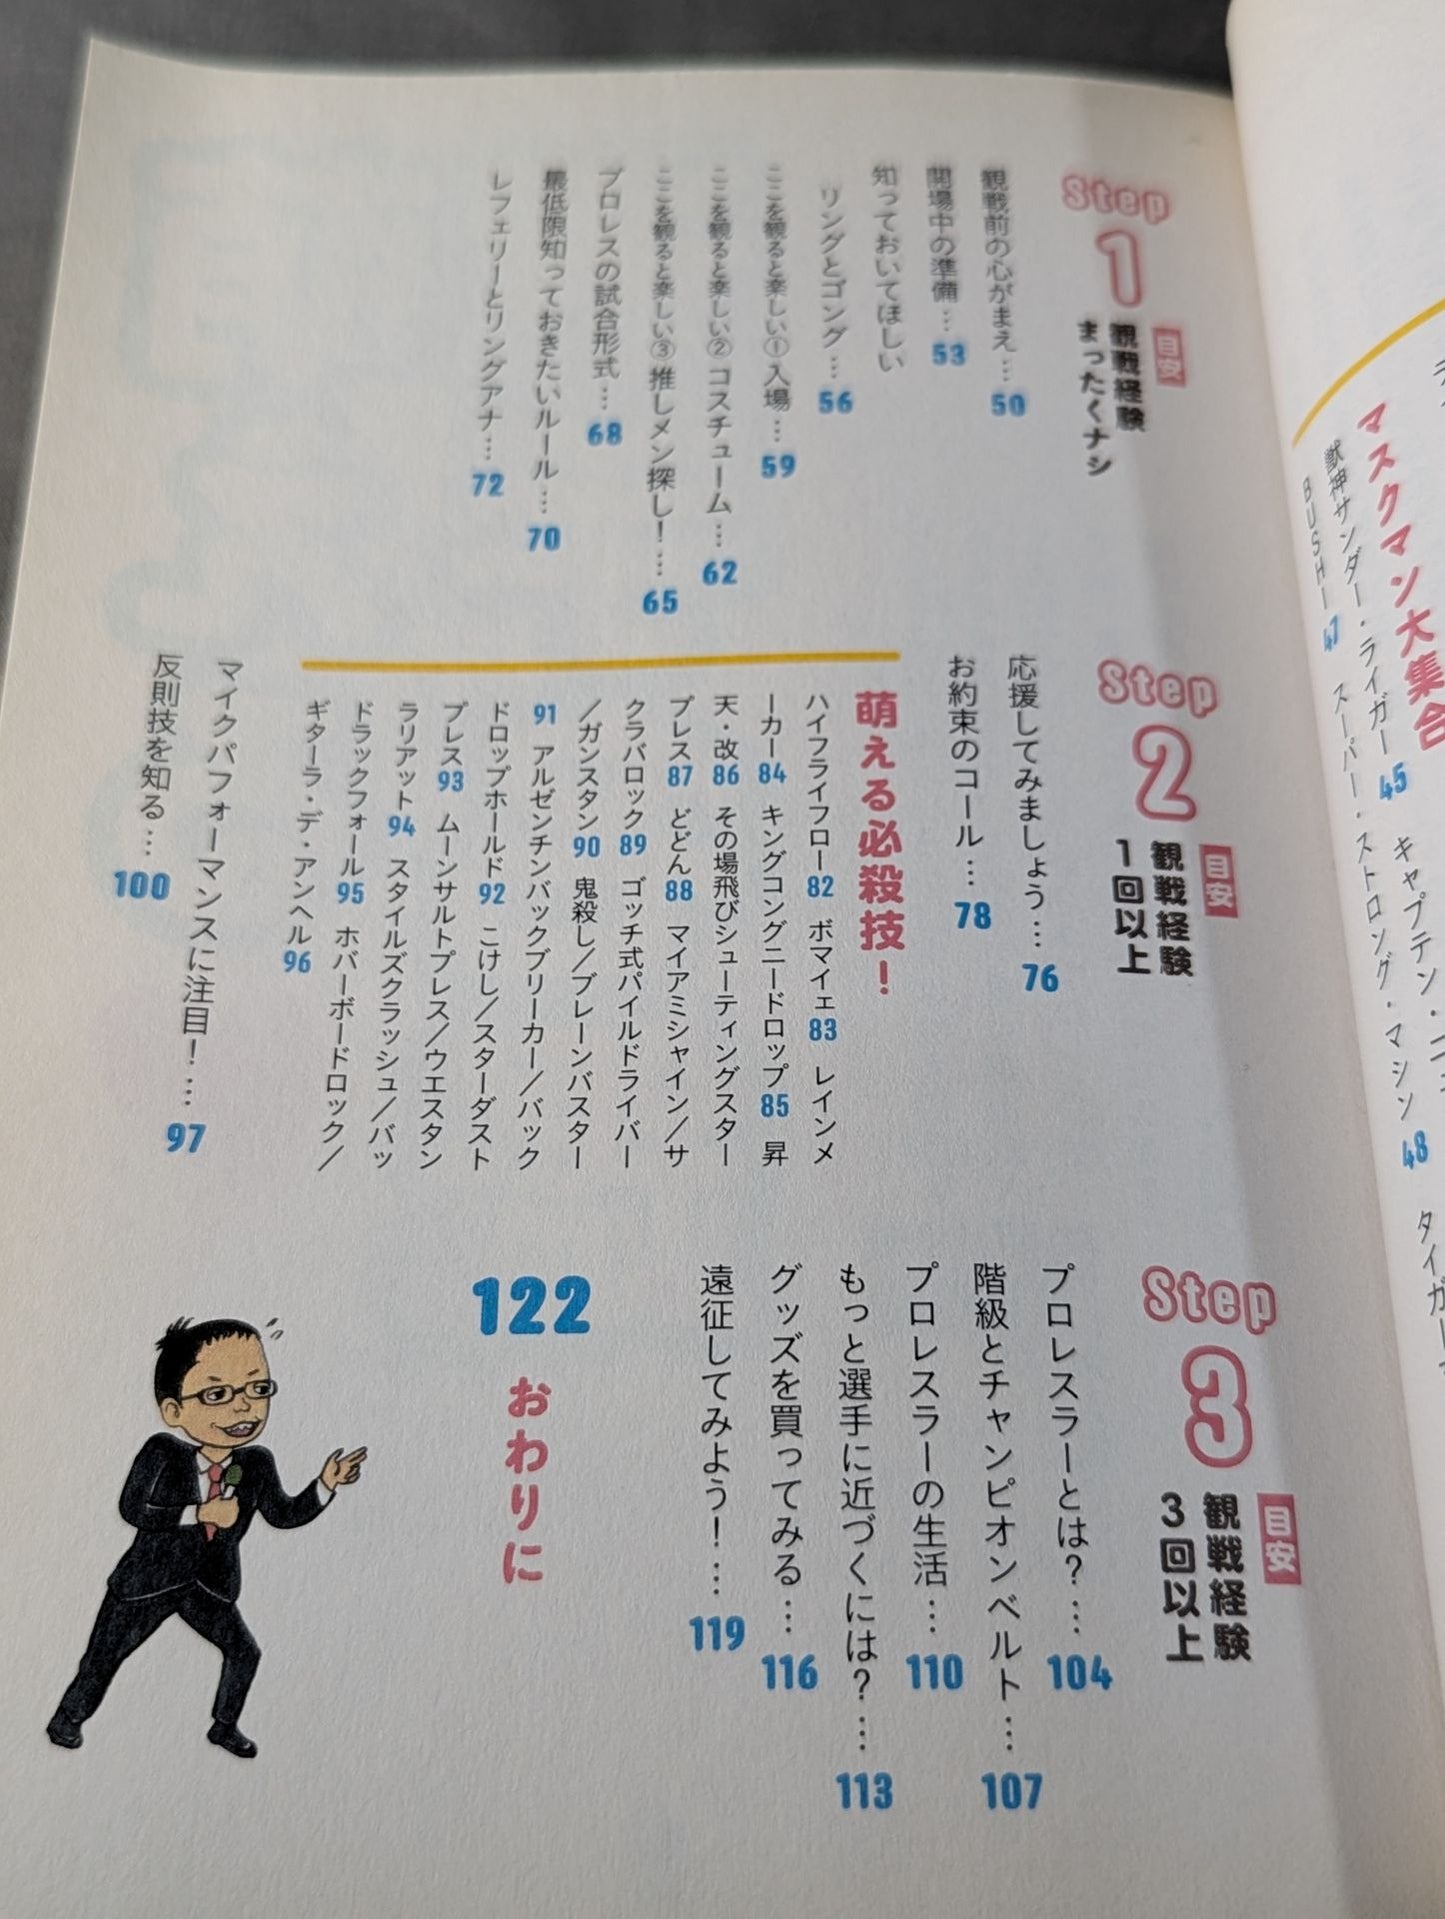 マスクマン大集合
獣神サンダー・ライガー 45 キャプテン・
BUSHI 47 スーパー・ストロング・マシン 48 タイガー
Step 1
目安
観戦経験
まったくナシ
観戦前の心がまえ… 50
開場中の準備… 53
知っておいてほしい
リングとゴング… 56
ここを観ると楽しい① 入場… 59
ここを観ると楽しい② コスチューム… 62
ここを観ると楽しい③ 推しメン探し!… 65
プロレスの試合形式… 68
最低限知っておきたいルール… 70
レフェリーとリングアナ… 72
Step 2
目安
観戦経験
1回以上
応援してみましょう… 76
お約束のコール… 78
萌える必殺技!
ハイフライフロー 82 ボマイェ 83 レインメ
ーカー 84 キングコングニードロップ 85 昇
天・改 86 その場飛びシューティングスター
プレス 87 どどん 88 マイアミシャイン/サ
クラバロック 89 ゴッチ式パイルドライバー
/ガンスタン 90 鬼殺し/ブレーンバスター
91 アルゼンチンバックブリーカー/バック
ドロップホールド 92 こけし/スターダスト
プレス 93 ムーンサルトプレス/ウエスタン
ラリアット 94 スタイルズクラッシュ/バッ
ドラックフォール 95 ホバーボードロック/
ギターラ・デ・アンヘル 96
マイクパフォーマンスに注目!… 97
反則技を知る… 100
Step 3
目安
観戦経験
3回以上
プロレスラーとは?… 104
階級とチャンピオンベルト… 107
プロレスラーの生活… 110
もっと選手に近づくには?… 113
グッズを買ってみる… 116
遠征してみよう!… 119
122 おわりに